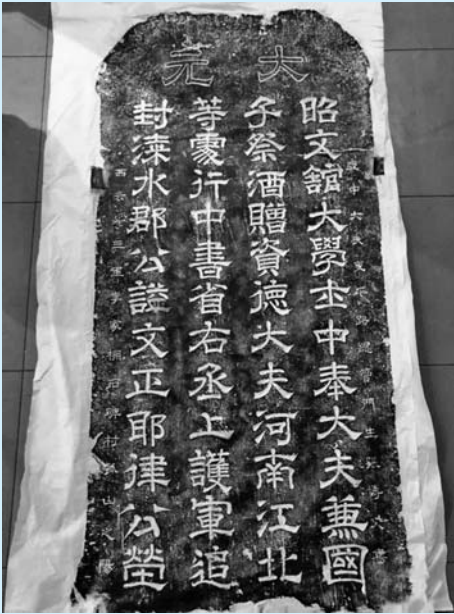 大元
昭文舘大學士中奉大夫兼國
子祭酒贈資德大夫河南江北
等處行中書省右丞上護軍追
封漆水郡公謚文正耶律公塋